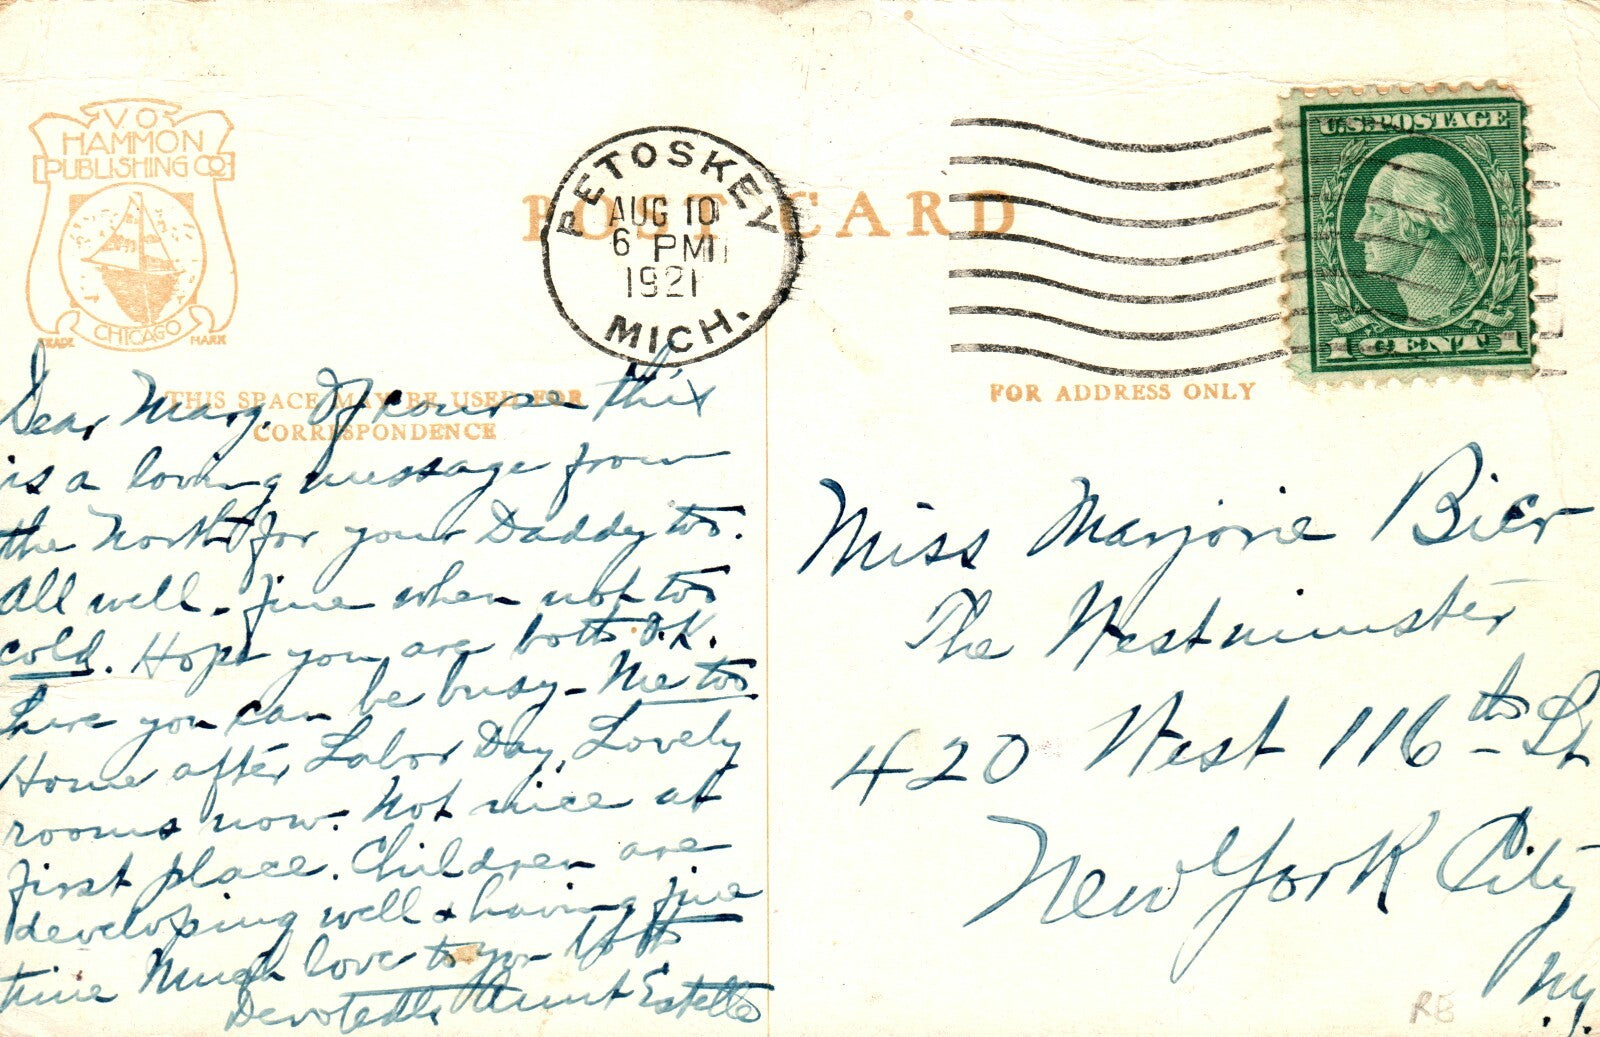 V.O.
HAMMON
PUBLISHING CO
CHICAGO
TRADE MARK
POST CARD
PETOSKEY
AUG 10
6 PM
1921
MICH.
U.S. POSTAGE
1 CENT 1
THIS SPACE MAY BE USED FOR
CORRESPONDENCE
FOR ADDRESS ONLY
Dear Marg. Of course this
is a loving message from
the North for your Daddy too.
All well - fine when not too
cold. Hope you are both O.K.
Sure you can be busy - Me too
Home after Labor Day. Lovely
rooms now. Not nice at
first place. Children are
developing well & having fine
time Much love to you both
Devotedly Aunt Estelle
Miss Marjorie Bier
The Westminster
420 West 116th St
New York City
N.Y.
RB